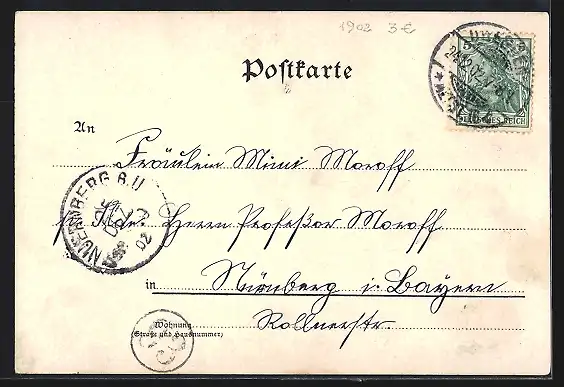 1902 3 €
Postkarte
DEUTSCHES REICH
An
Fräulein Mimi Moroff
p. Adr. Herrn Profeßor Moroff
NUERNBERG B.U
02
in Nürnberg i. Bayern
Wohnung
(Straße und Hausnummer)
Rollnerstr.